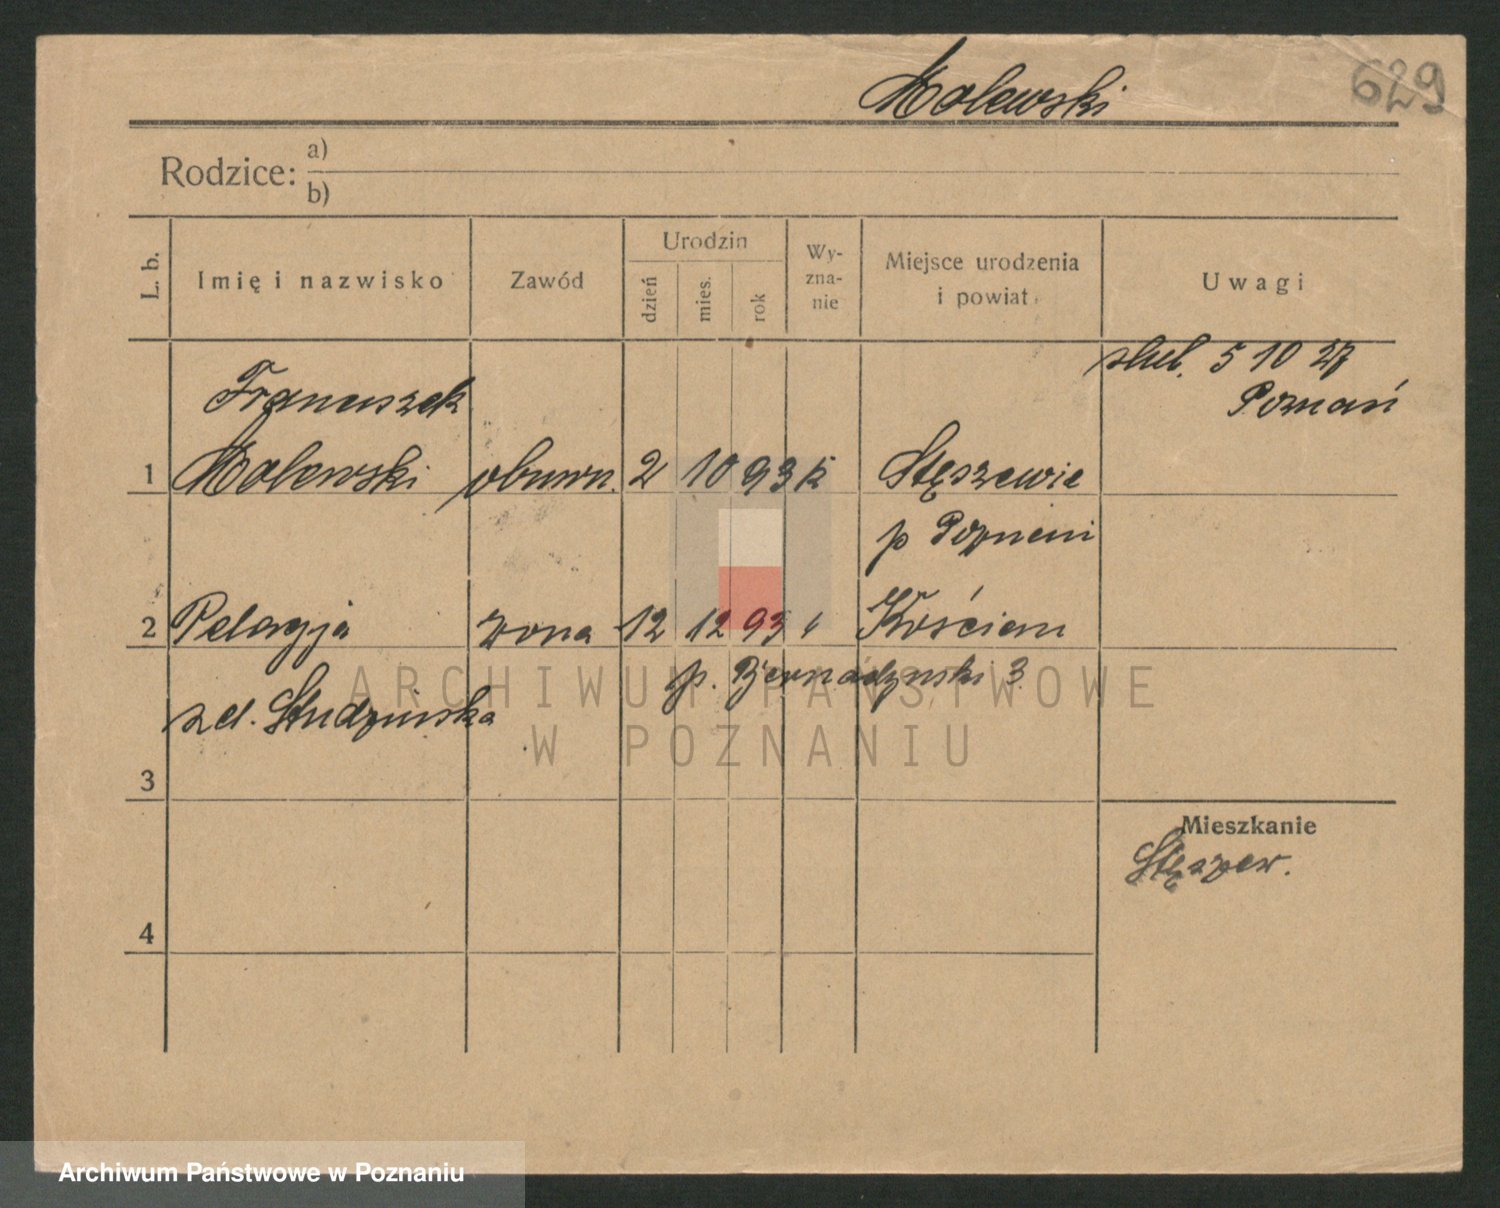 Malewski
629
Rodzice: a)
b)
L. b.
Imię i nazwisko
Zawód
Urodzin
dzień
mies.
rok
Wy-
zna-
nie
Miejsce urodzenia
i powiat
Uwagi
ślub. 5 10 27
Poznań
Franciszek
1 Malewski obuwn. 2 10 93 k Stęszewie
p Poznań
2 Pelagja żona 12 12 93 " Kościan
p. Bernadynski 3
zd. Studzińska
3
Mieszkanie
Stęszew.
4
ARCHIWUM PAŃSTWOWE
W POZNANIU
Archiwum Państwowe w Poznaniu